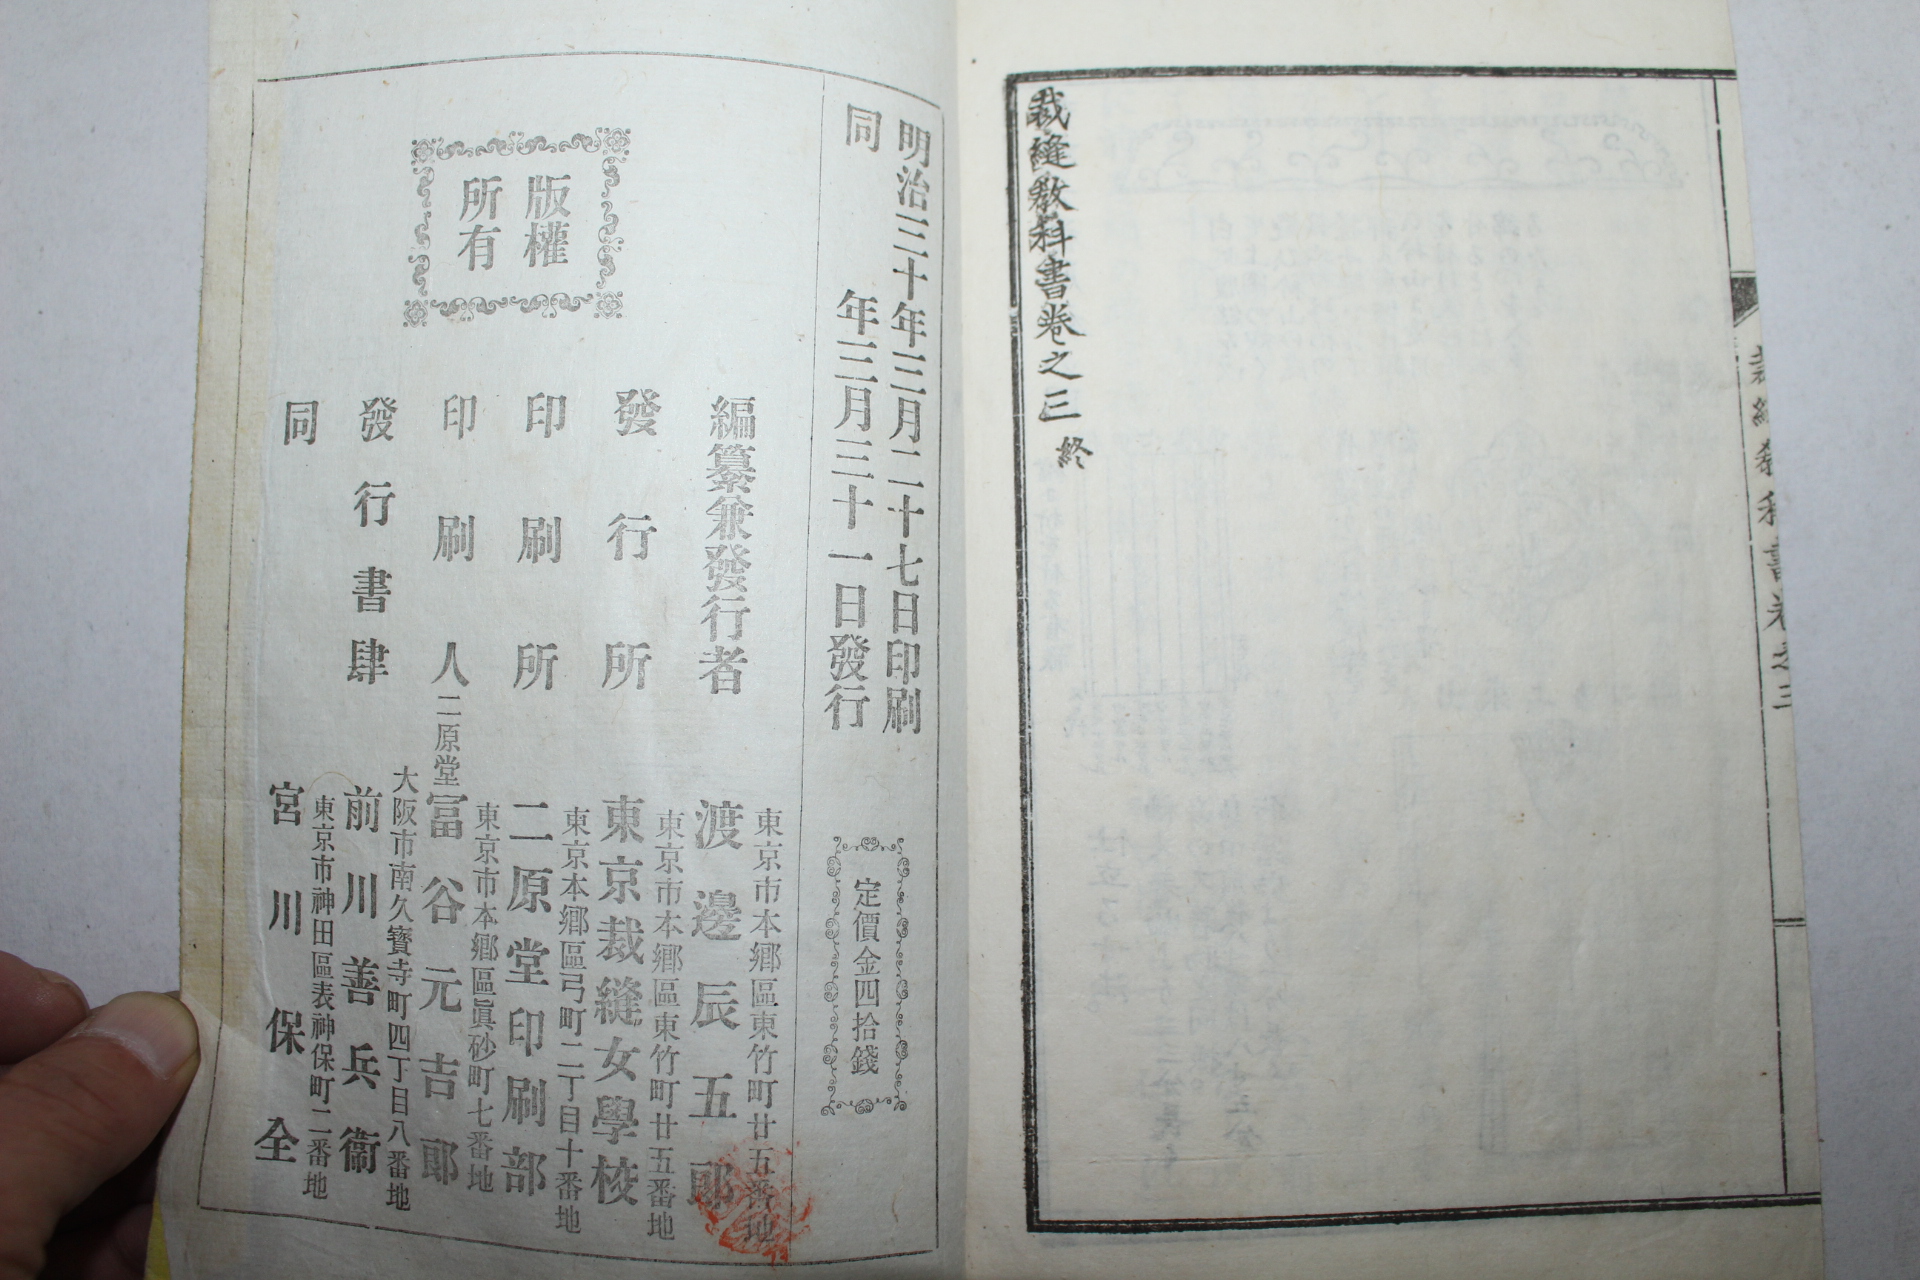 裁縫教科書卷之三
裁縫教科書卷之三 終
明治三十年三月二十七日印刷
同 年三月三十一日發行
定價金四拾錢
版權
所有
編纂兼發行者
東京市本郷區東竹町廿五番地
渡邊辰五郎
發行所
東京市本郷區東竹町廿五番地
東京裁縫女學校
印刷所
東京本郷區弓町二丁目十番地
二原堂印刷部
印刷人
東京市本郷區眞砂町七番地
二原堂 冨谷元吉郎
發行書肆
大阪市南久寳寺町四丁目八番地
前川善兵衞
同
東京市神田區表神保町二番地
宮川保全